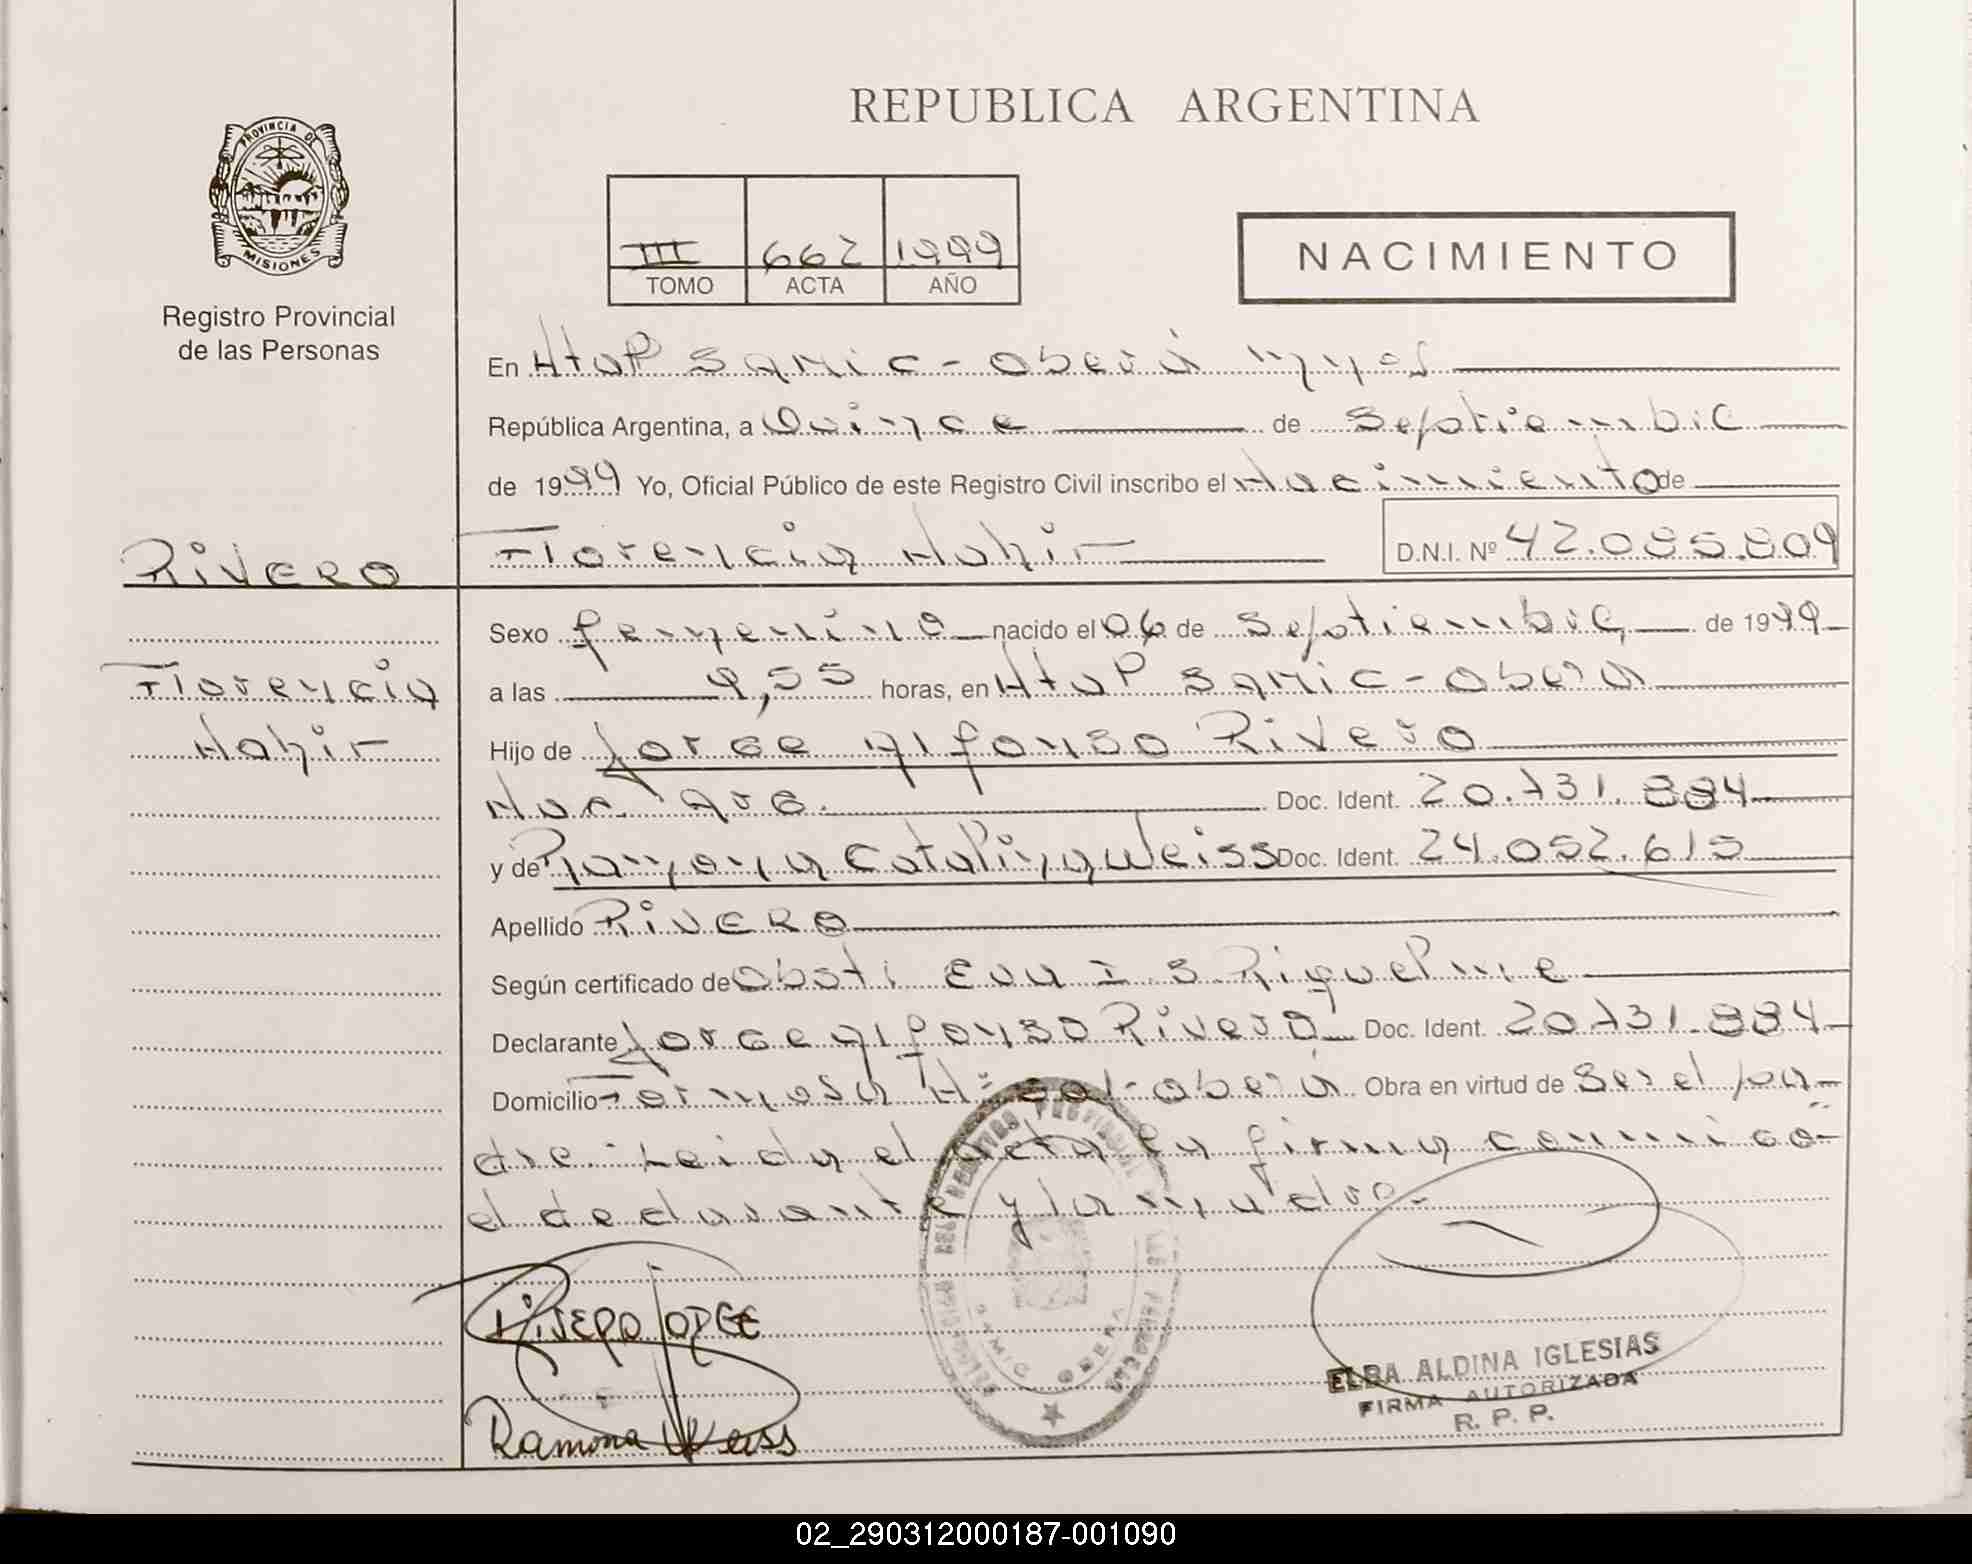 REPUBLICA ARGENTINA
PROVINCIA DE
MISIONES
Registro Provincial
de las Personas
III 662 1999
TOMO ACTA AÑO
NACIMIENTO
En Htal Samic - Oberá
República Argentina, a Quince de Septiembre
de 1999 Yo, Oficial Público de este Registro Civil inscribo el Nacimiento de
RIVERO Florencia Nahir D.N.I. Nº 42.085.809
Sexo femenino nacido el 06 de Septiembre de 1999
Florencia
Nahir
a las 9,55 horas, en Htal Samic - Oberá
Hijo de Jorge Alfonso Rivero
Nac. Arg. Doc. Ident. 20.731.884
y de Ramona Catalina Weiss Doc. Ident. 24.052.615
Apellido RIVERO
Según certificado de Obst. Eva I S Riquelme
Declarante Jorge Alfonso Rivero Doc. Ident. 20.731.884
Domicilio Formosa Oberá Obra en virtud de Ser el pa-
dre. Leida el acta la firma conmigo
el declarante y la madre.
RIVERO JORGE
Ramona Weiss
SAMIC OBERA
ELBA ALDINA IGLESIAS
FIRMA AUTORIZADA
R. P. P.
02_290312000187-001090